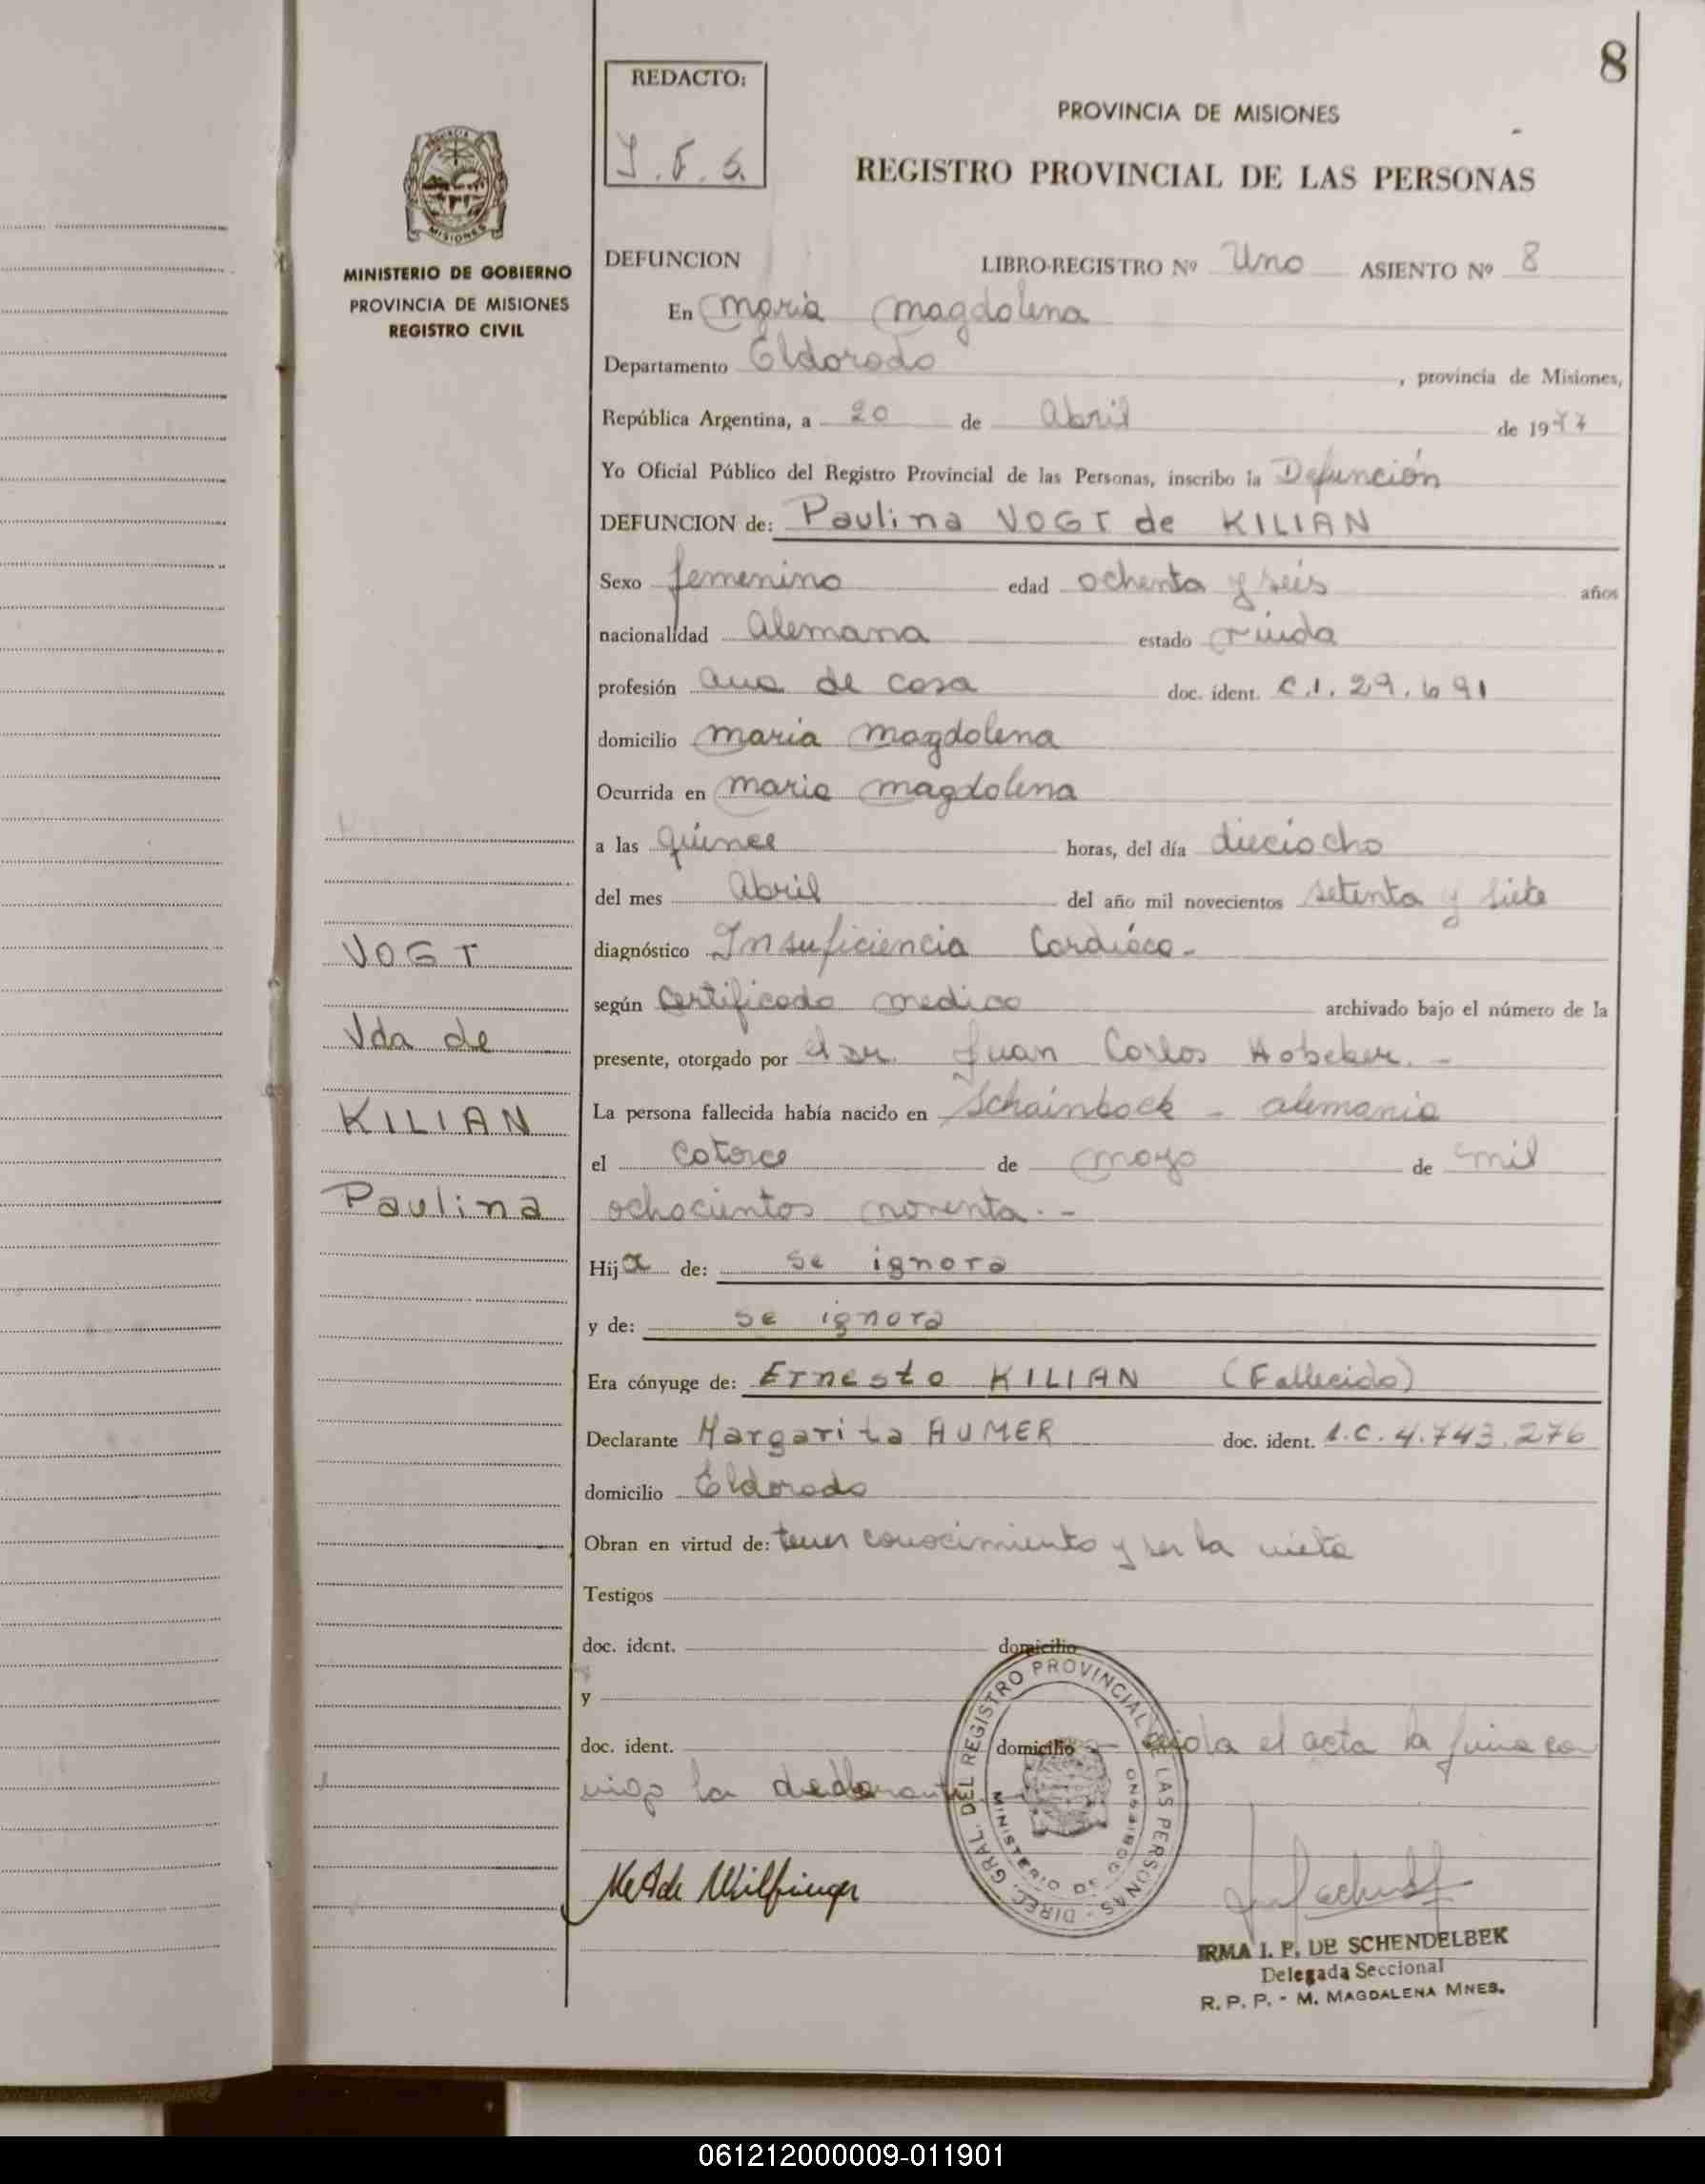 8
REDACTO:
PROVINCIA DE MISIONES
REGISTRO PROVINCIAL DE LAS PERSONAS
MISIONES
MINISTERIO DE GOBIERNO
PROVINCIA DE MISIONES
REGISTRO CIVIL
DEFUNCION LIBRO-REGISTRO Nº Uno ASIENTO Nº 8
En Maria Magdalena
Departamento Eldorado, provincia de Misiones,
República Argentina, a 20 de Abril de 1977
Yo Oficial Público del Registro Provincial de las Personas, inscribo la Defunción
DEFUNCION de: Paulina VOGT de KILIAN
Sexo femenino edad ochenta y seis años
nacionalidad Alemana estado viuda
profesión ama de casa doc. ident. C.I. 29.691
domicilio Maria Magdalena
Ocurrida en Maria Magdalena
a las quince horas, del día dieciocho
del mes Abril del año mil novecientos setenta y siete
diagnóstico Insuficiencia Cardiaca -
según Certificado medico archivado bajo el número de la
presente, otorgado por el Dr. Juan Carlos
La persona fallecida había nacido en Schainbock - Alemania
el catorce de mayo de mil
ochocientos noventa. -
Hija de: se ignora
y de: se ignora
Era cónyuge de: Ernesto KILIAN (Fallecido)
Declarante Margarita AUMER doc. ident. L.C. 4.743.276
domicilio Eldorado
Obran en virtud de: tener conocimiento y ser la nieta
Testigos
doc. ident. domicilio
y
doc. ident. domicilio el acta la firma con
migo la declarante
VOGT
Vda de
KILIAN
Paulina
DIREC. GRAL. DEL REGISTRO PROVINCIAL DE LAS PERSONAS
MINISTERIO DE GOBIERNO
IRMA I. P. DE SCHENDELBEK
Delegada Seccional
R. P. P. - M. MAGDALENA MNES.
061212000009-011901